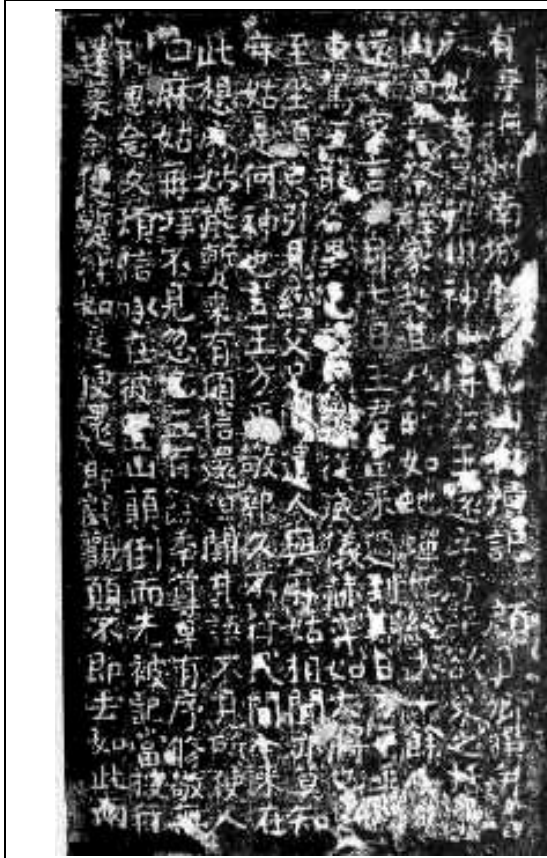 有唐撫州南城縣麻姑山仙壇記 顏真卿撰并書
麻姑者葛稚川神仙傳云王遠字方平欲東之括
山過吳蔡經家教其尸解如蛇蟬也經去十餘
還語家言七月七日王君當來過到期日方平
車駕五龍各異色旌旗導從威儀赫弈如大將也
至坐須臾引見經父兄因遣人與麻姑相聞亦莫知
麻姑是何神也言王方平敬報久不行民間今來在
此想麻姑能暫來有頃信還但聞其語不見所使人
曰麻姑再拜不見忽已五百餘年尊卑有序修敬無
階思念久煩信承在彼登山顛倒而先被記當按行
蓬萊今便暫往如是便還即親觀願不即去如此兩